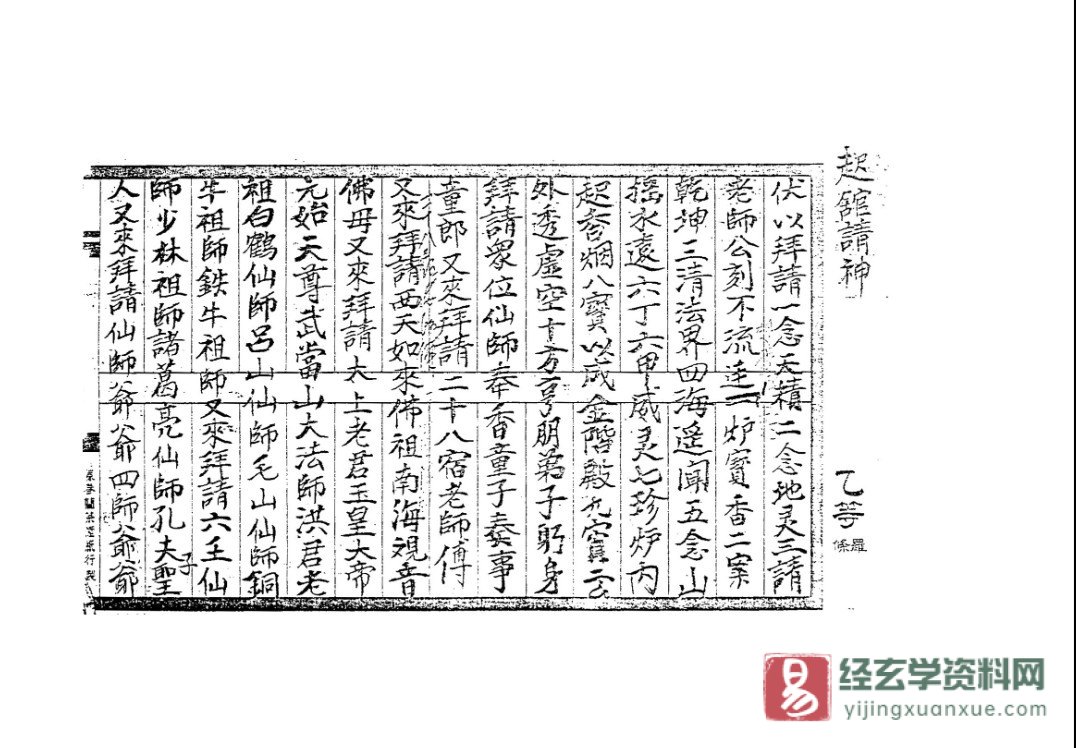 起館請神
乙等
伏以拜請一念天積二念地灵三請
老師公刻不流連一炉寳香二案
乾坤三清法界四海遥聞五念山
摇水遠六丁六甲威灵七珍炉内
起香烟八寳以成金階殿九霄云
外透虚空十方亨朋弟子躬身
拜請衆位仙師奉香童子奏事
童郎又來拜請二十八宿老師傅
又來拜請西天如來佛祖南海观音
佛母又來拜請太上老君玉皇大帝
元始天尊武當山大法師洪君老
祖白鶴仙師吕山仙師毛山仙師銅
牛祖師鉄牛祖師又來拜請六壬仙
師少林祖師諸葛亮仙師孔夫子聖
人又來拜請仙師爺爺四師爺爺
易
经玄学资料网
yijingxuanxue.com